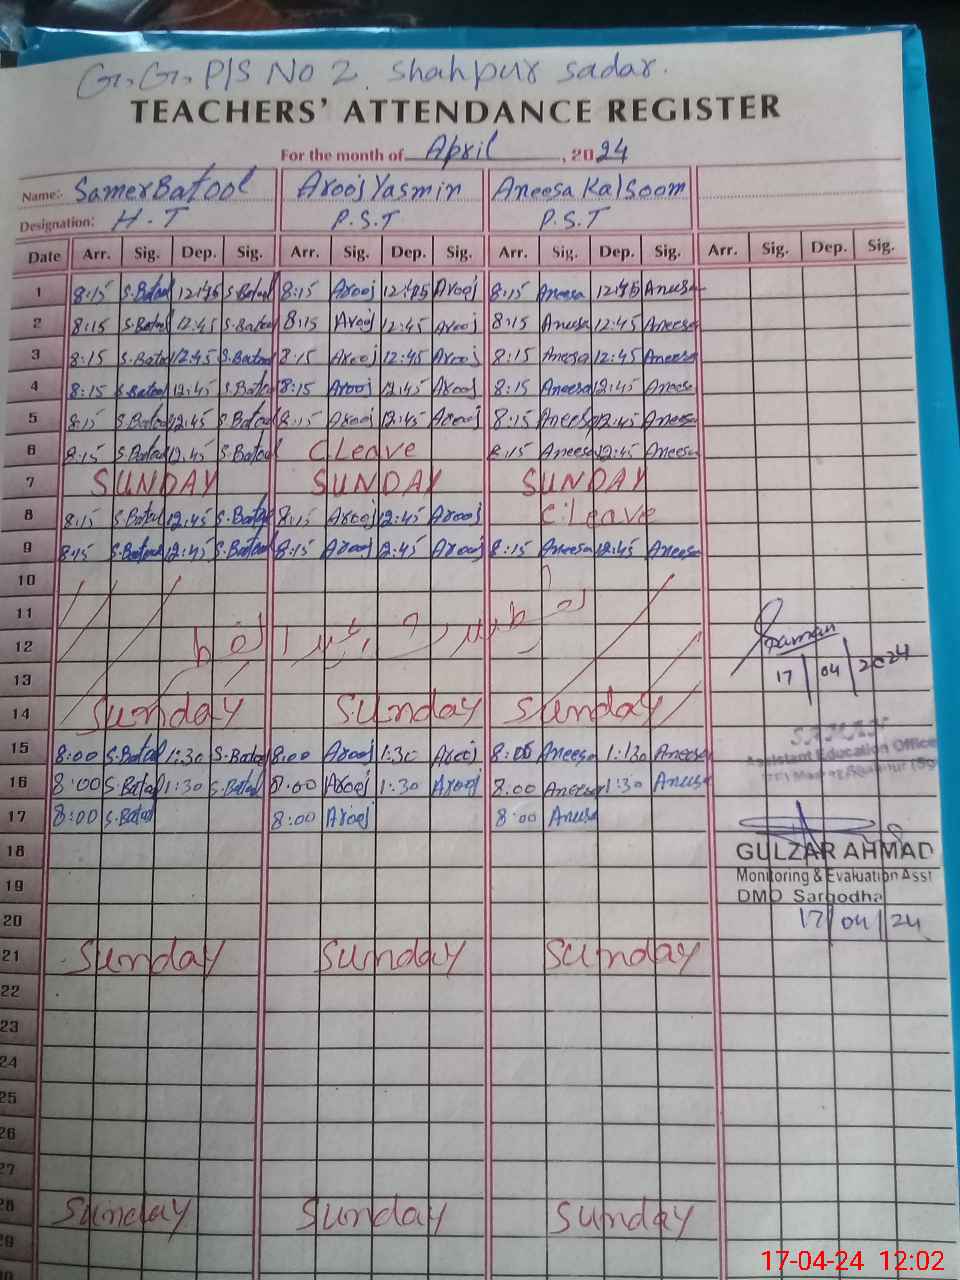 G. G. P/S No 2 Shahpur sadar.
TEACHERS' ATTENDANCE REGISTER
For the month of April, 2024
Name: Samer Batool Arooj Yasmin Aneesa Kalsoom
Designation: H.T P.S.T P.S.T
Date Arr. Sig. Dep. Sig. Arr. Sig. Dep. Sig. Arr. Sig. Dep. Sig. Arr. Sig. Dep. Sig.
1 8:15 S.Batool 12:45 S.Batool 8:15 Arooj 12:45 Arooj 8:15 Aneesa 12:45 Aneesa
2 8:15 S.Batool 12:45 S.Batool 8:15 Arooj 12:45 Arooj 8:15 Aneesa 12:45 Aneesa
3 8:15 S.Batool 12:45 S.Batool 8:15 Arooj 12:45 Arooj 8:15 Aneesa 12:45 Aneesa
4 8:15 S.Batool 12:45 S.Batool 8:15 Arooj 12:45 Arooj 8:15 Aneesa 12:45 Aneesa
5 8:15 S.Batool 12:45 S.Batool 8:15 Arooj 12:45 Arooj 8:15 Aneesa 12:45 Aneesa
6 8:15 S.Batool 12:45 S.Batool C Leave 8:15 Aneesa 12:45 Aneesa
7 SUNDAY SUNDAY SUNDAY
8 8:15 S.Batool 12:45 S.Batool 8:15 Arooj 12:45 Arooj C.Leave
9 8:15 S.Batool 12:45 S.Batool 8:15 Arooj 12:45 Arooj 8:15 Aneesa 12:45 Aneesa
10
11
12
13
17/04/2024
14 Sunday Sunday Sunday
15 8:00 S.Batool 1:30 S.Batool 8:00 Arooj 1:30 Arooj 8:00 Aneesa 1:30 Aneesa
Assistant Education Officer
16 8:00 S.Batool 1:30 S.Batool 8:00 Arooj 1:30 Arooj 8:00 Aneesa 1:30 Aneesa
17 8:00 S.Batool 8:00 Arooj 8:00 Aneesa
18
GULZAR AHMAD
Monitoring & Evaluation Asst
19
DMO Sargodha
20
17/04/24
21 Sunday Sunday Sunday
22
23
24
25
26
27
28 Sunday Sunday Sunday
29
17-04-24 12:02